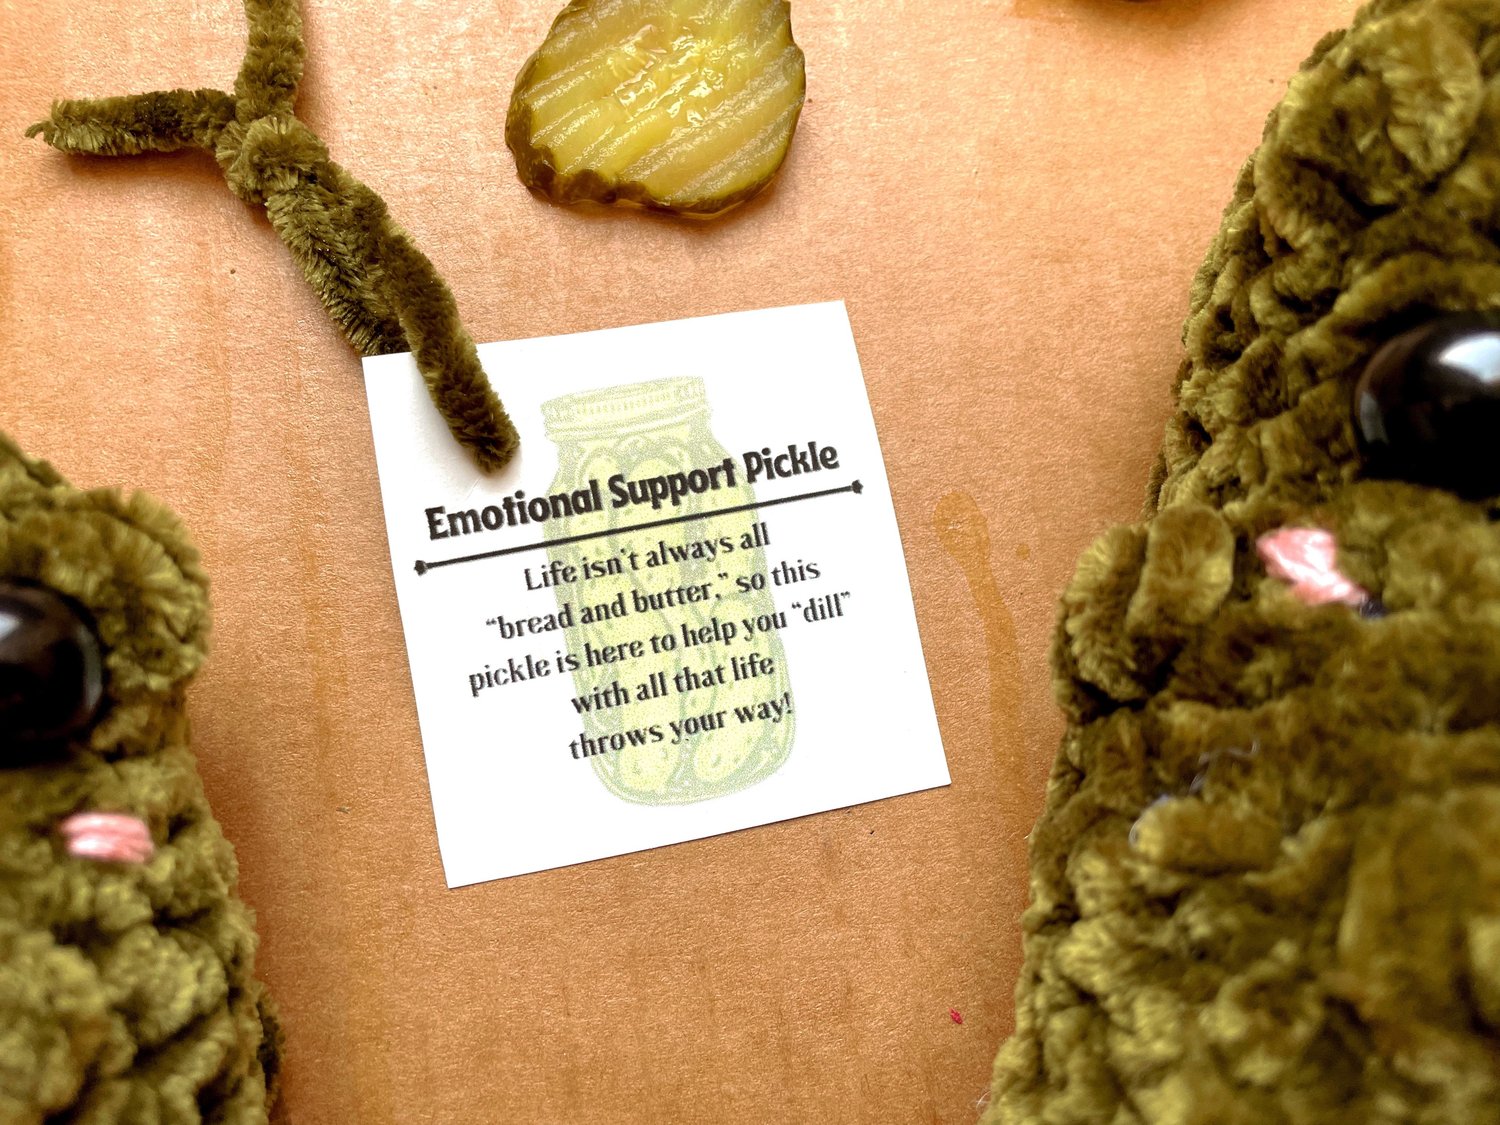 Emotional Support Pickle
Life isn't always all
"bread and butter," so this
pickle is here to help you "dill"
with all that life
throws your way!